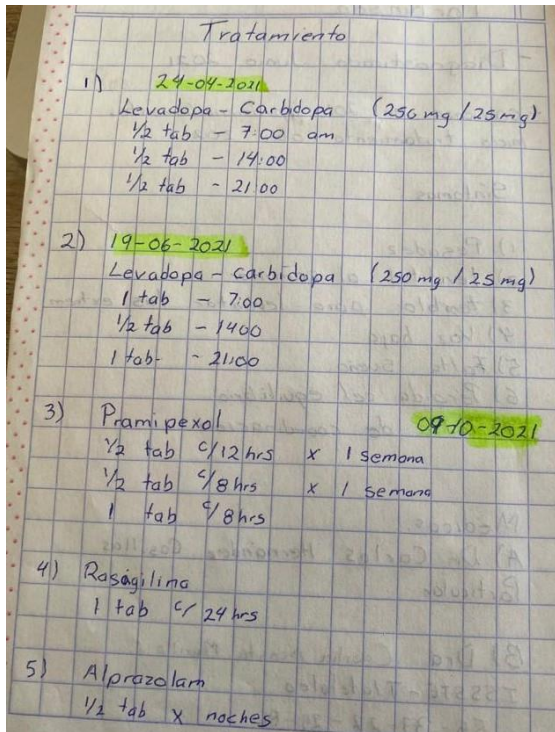 Tratamiento
1) 24-04-2021
Levadopa - Carbidopa (250 mg / 25 mg)
1/2 tab - 7:00 am
1/2 tab - 14:00
1/2 tab - 21:00
2) 19-06-2021
Levadopa - Carbidopa (250 mg / 25 mg)
1 tab - 7:00
1/2 tab - 1400
1 tab- - 21:00
3) Pramipexol 09-10-2021
1/2 tab c/12 hrs x 1 semana
1/2 tab c/8 hrs x 1 semana
1 tab c/8 hrs
4) Rasagilina
1 tab c/ 24 hrs
5) Alprazolam
1/2 tab x noches